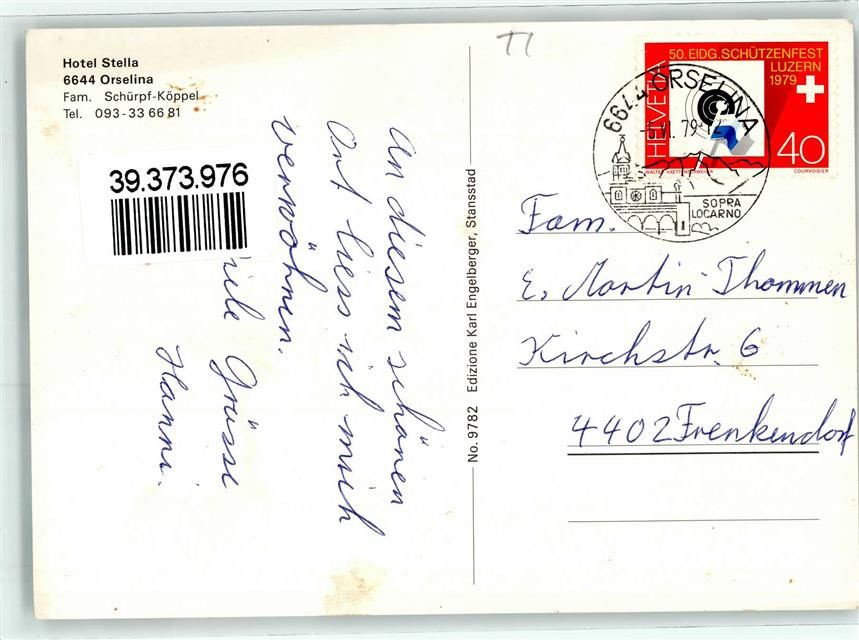 Hotel Stella
6644 Orselina
Fam. Schürpf-Köppel
Tel. 093-33 66 81
39.373.976
An diesem schönen
Ort liess ich mich
verwöhnen.
Viele Grüsse
Hanni.
No. 9782 Edizione Karl Engelberger, Stansstad
TI
50. EIDG. SCHÜTZENFEST
LUZERN
1979
HELVETIA
40
COURVOISIER
6644 ORSELINA
-6.VI.79-12
SOPRA
LOCARNO
Fam.
E. Martin-Thommen
Kirchstr. 6
4402 Frenkendorf